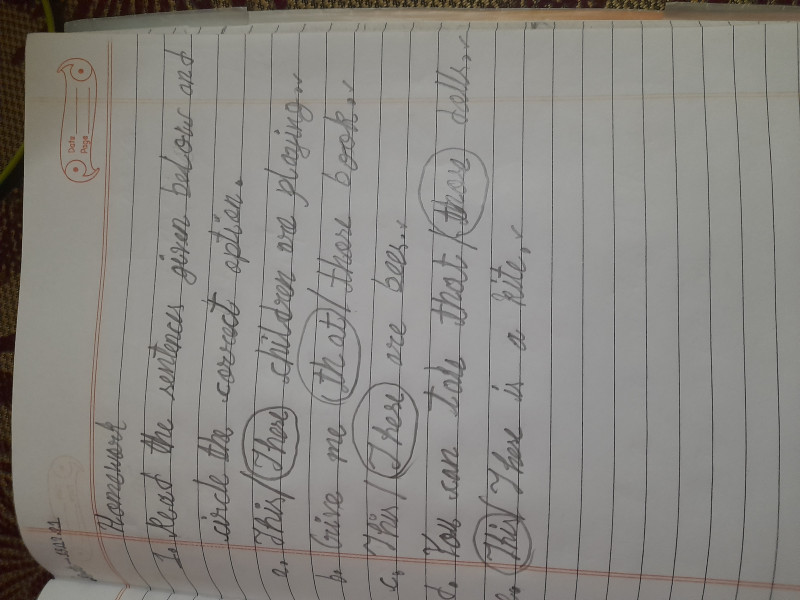 Date
Page
Homework
1. Read the sentences given below and
circle the correct option.
a. This/These children are playing.
b. Give me that/those book.
c. This/These are bees.
d. You can take that/those dolls.
e. This/These is a kite.